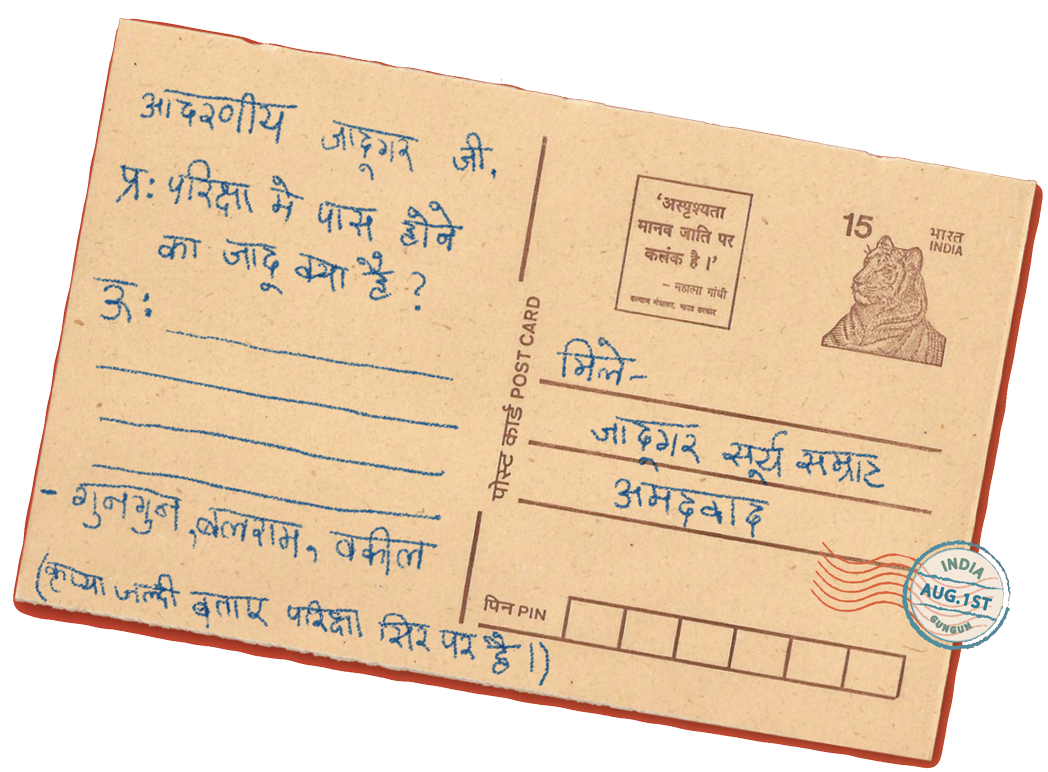 आदरणीय जादूगर जी,
प्र: परिक्षा मे पास होने
का जादू क्या है ?
ऊ:
- गुनगुन, बलराम, वकील
(कृप्या जल्दी बताए परिक्षा सिर पर है।)
पोस्ट कार्ड POST CARD
'अस्पृश्यता
मानव जाति पर
कलंक है।'
- महात्मा गांधी
कल्याण मंत्रालय, भारत सरकार
15
भारत
INDIA
मिले-
जादूगर सूर्य सम्राट
अमदवाद
पिन PIN
INDIA
AUG.1ST
GUNGUN